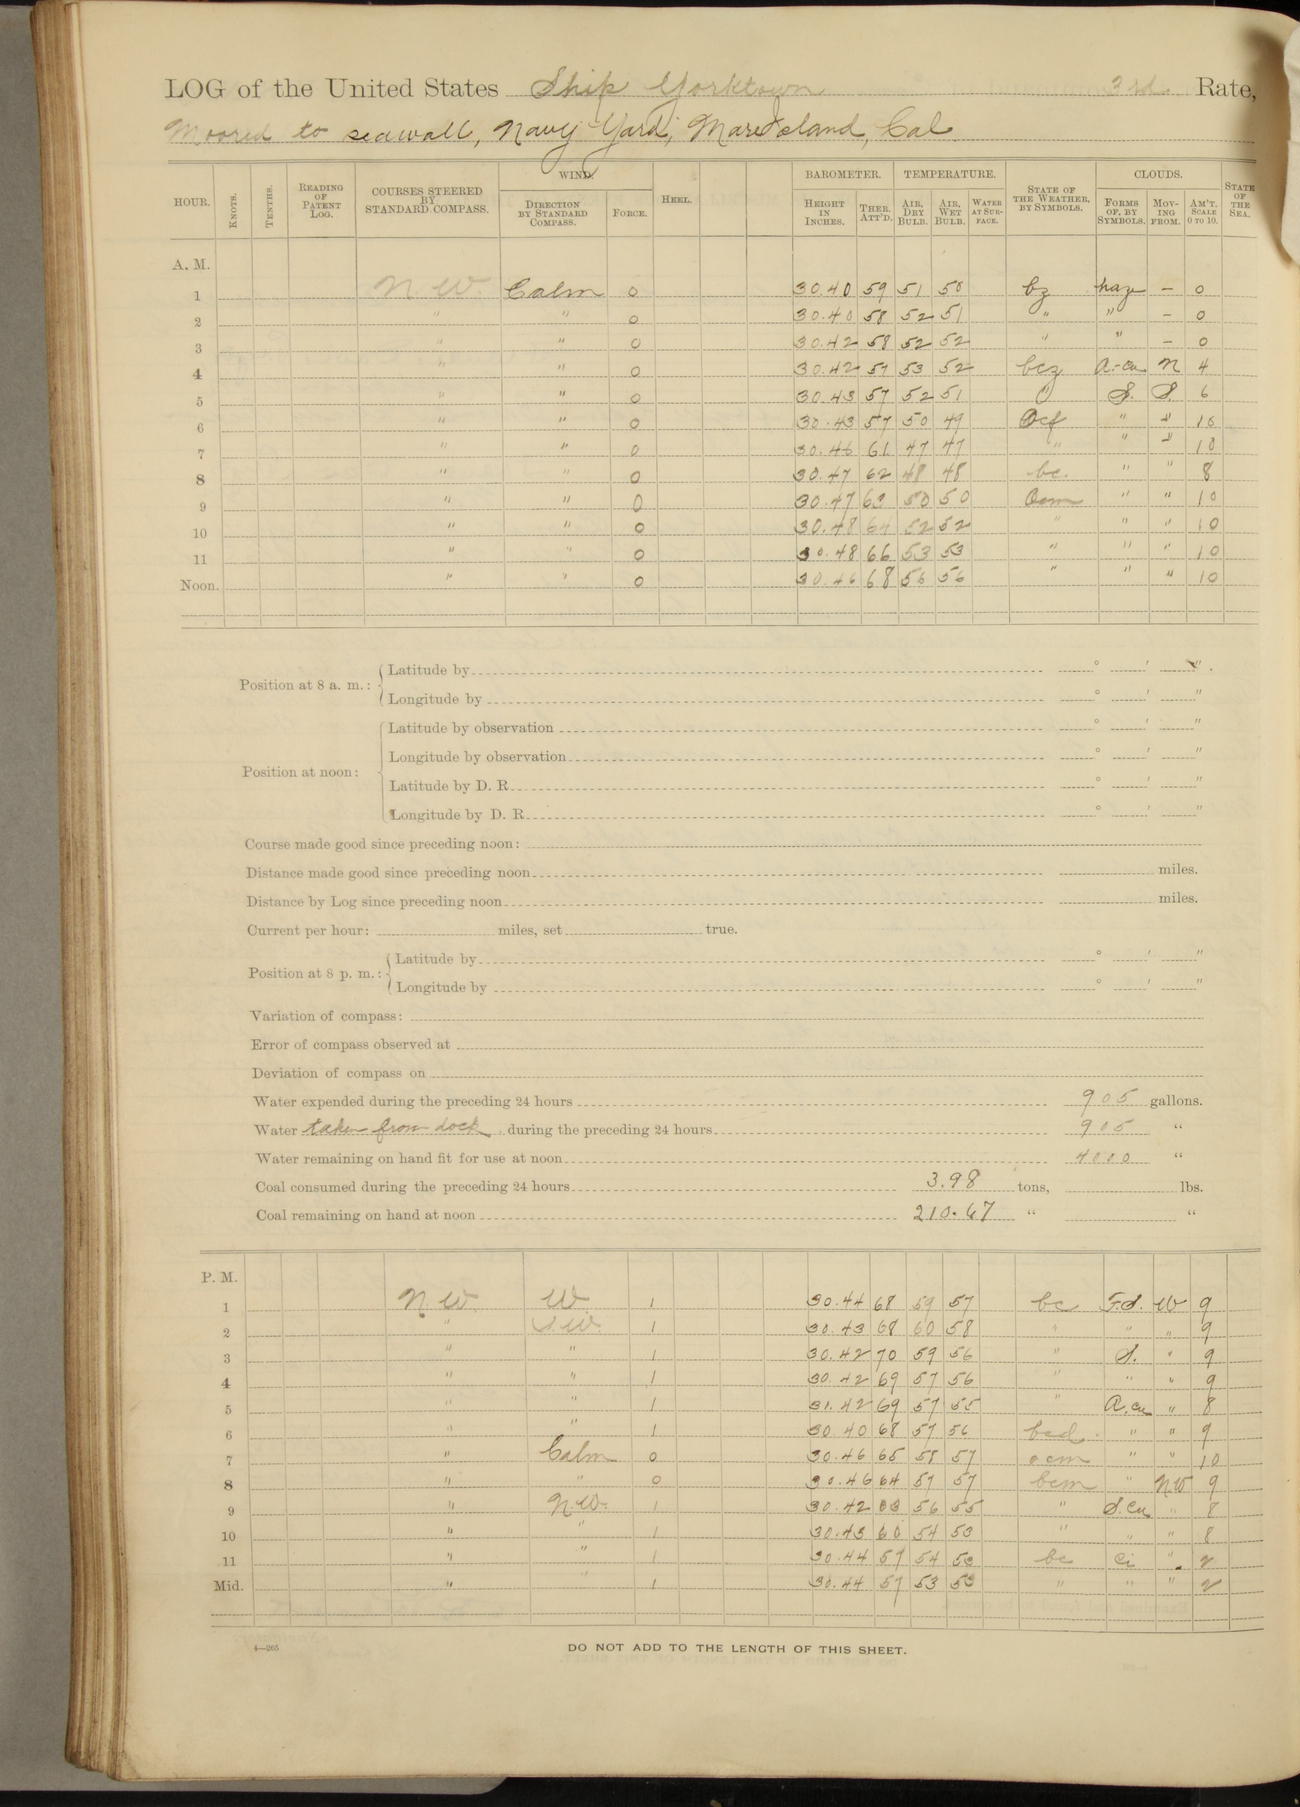 LOG of the United States Ship Yorktown 3rd Rate,
Moored to seawall, Navy Yard, Mare Island, Cal.
HOUR. KNOTS. TENTHS. READING OF PATENT LOG. COURSES STEERED BY STANDARD COMPASS. WIND. DIRECTION BY STANDARD COMPASS. FORCE. HEEL. BAROMETER. HEIGHT IN INCHES. THER. ATT'D. TEMPERATURE. AIR, DRY BULB. AIR, WET BULB. WATER AT SURFACE. STATE OF THE WEATHER, BY SYMBOLS. CLOUDS. FORMS OF, BY SYMBOLS. MOVING FROM. AM'T. SCALE 0 TO 10. STATE OF THE SEA.
A. M.
1 N. W. Calm 0 30.40 59 51 50 bz haze – 0
2 " " 0 30.40 58 52 51 " " – 0
3 " " 0 30.42 58 52 52 " " – 0
4 " " 0 30.42 57 53 52 bcz A.-cu N 4
5 " " 0 30.43 57 52 51 S. S. 6
6 " " 0 30.43 57 50 49 Ocf " " 10
7 " " 0 30.46 61 47 47 " " " 10
8 " " 0 30.47 62 48 48 bc. " " 8
9 " " 0 30.47 63 50 50 Ocm " " 10
10 " " 0 30.48 64 52 52 " " " 10
11 " " 0 30.48 66 53 53 " " " 10
Noon. " " 0 30.46 68 56 56 " " " 10
Position at 8 a. m.: Latitude by ° ' "
Longitude by ° ' "
Position at noon: Latitude by observation ° ' "
Longitude by observation ° ' "
Latitude by D. R. ° ' "
Longitude by D. R. ° ' "
Course made good since preceding noon:
Distance made good since preceding noon miles.
Distance by Log since preceding noon miles.
Current per hour: miles, set true.
Position at 8 p. m.: Latitude by ° ' "
Longitude by ° ' "
Variation of compass:
Error of compass observed at
Deviation of compass on
Water expended during the preceding 24 hours 905 gallons.
Water taken from dock during the preceding 24 hours 905 "
Water remaining on hand fit for use at noon 4000 "
Coal consumed during the preceding 24 hours 3.98 tons, lbs.
Coal remaining on hand at noon 210.67 " "
P. M.
1 N. W. W. 1 30.44 68 59 57 bc F.S. W 9
2 " S.W. 1 30.43 68 60 58 " " " 9
3 " " 1 30.42 70 59 56 " S. " 9
4 " " 1 30.42 69 57 56 " " " 9
5 " " 1 31.42 69 57 55 " A.cu " 8
6 " " 1 30.40 68 57 56 bcd " " 9
7 " Calm 0 30.46 65 58 57 ocm " " 10
8 " " 0 30.46 64 57 57 bcm " NW 9
9 " N.W. 1 30.42 63 56 55 " S.Cu " 8
10 " " 1 30.43 60 54 53 " " " 8
11 " " 1 30.44 57 54 53 bc Ci " 2
Mid. " " 1 30.44 57 53 53 " " " 2
4—265
DO NOT ADD TO THE LENGTH OF THIS SHEET.